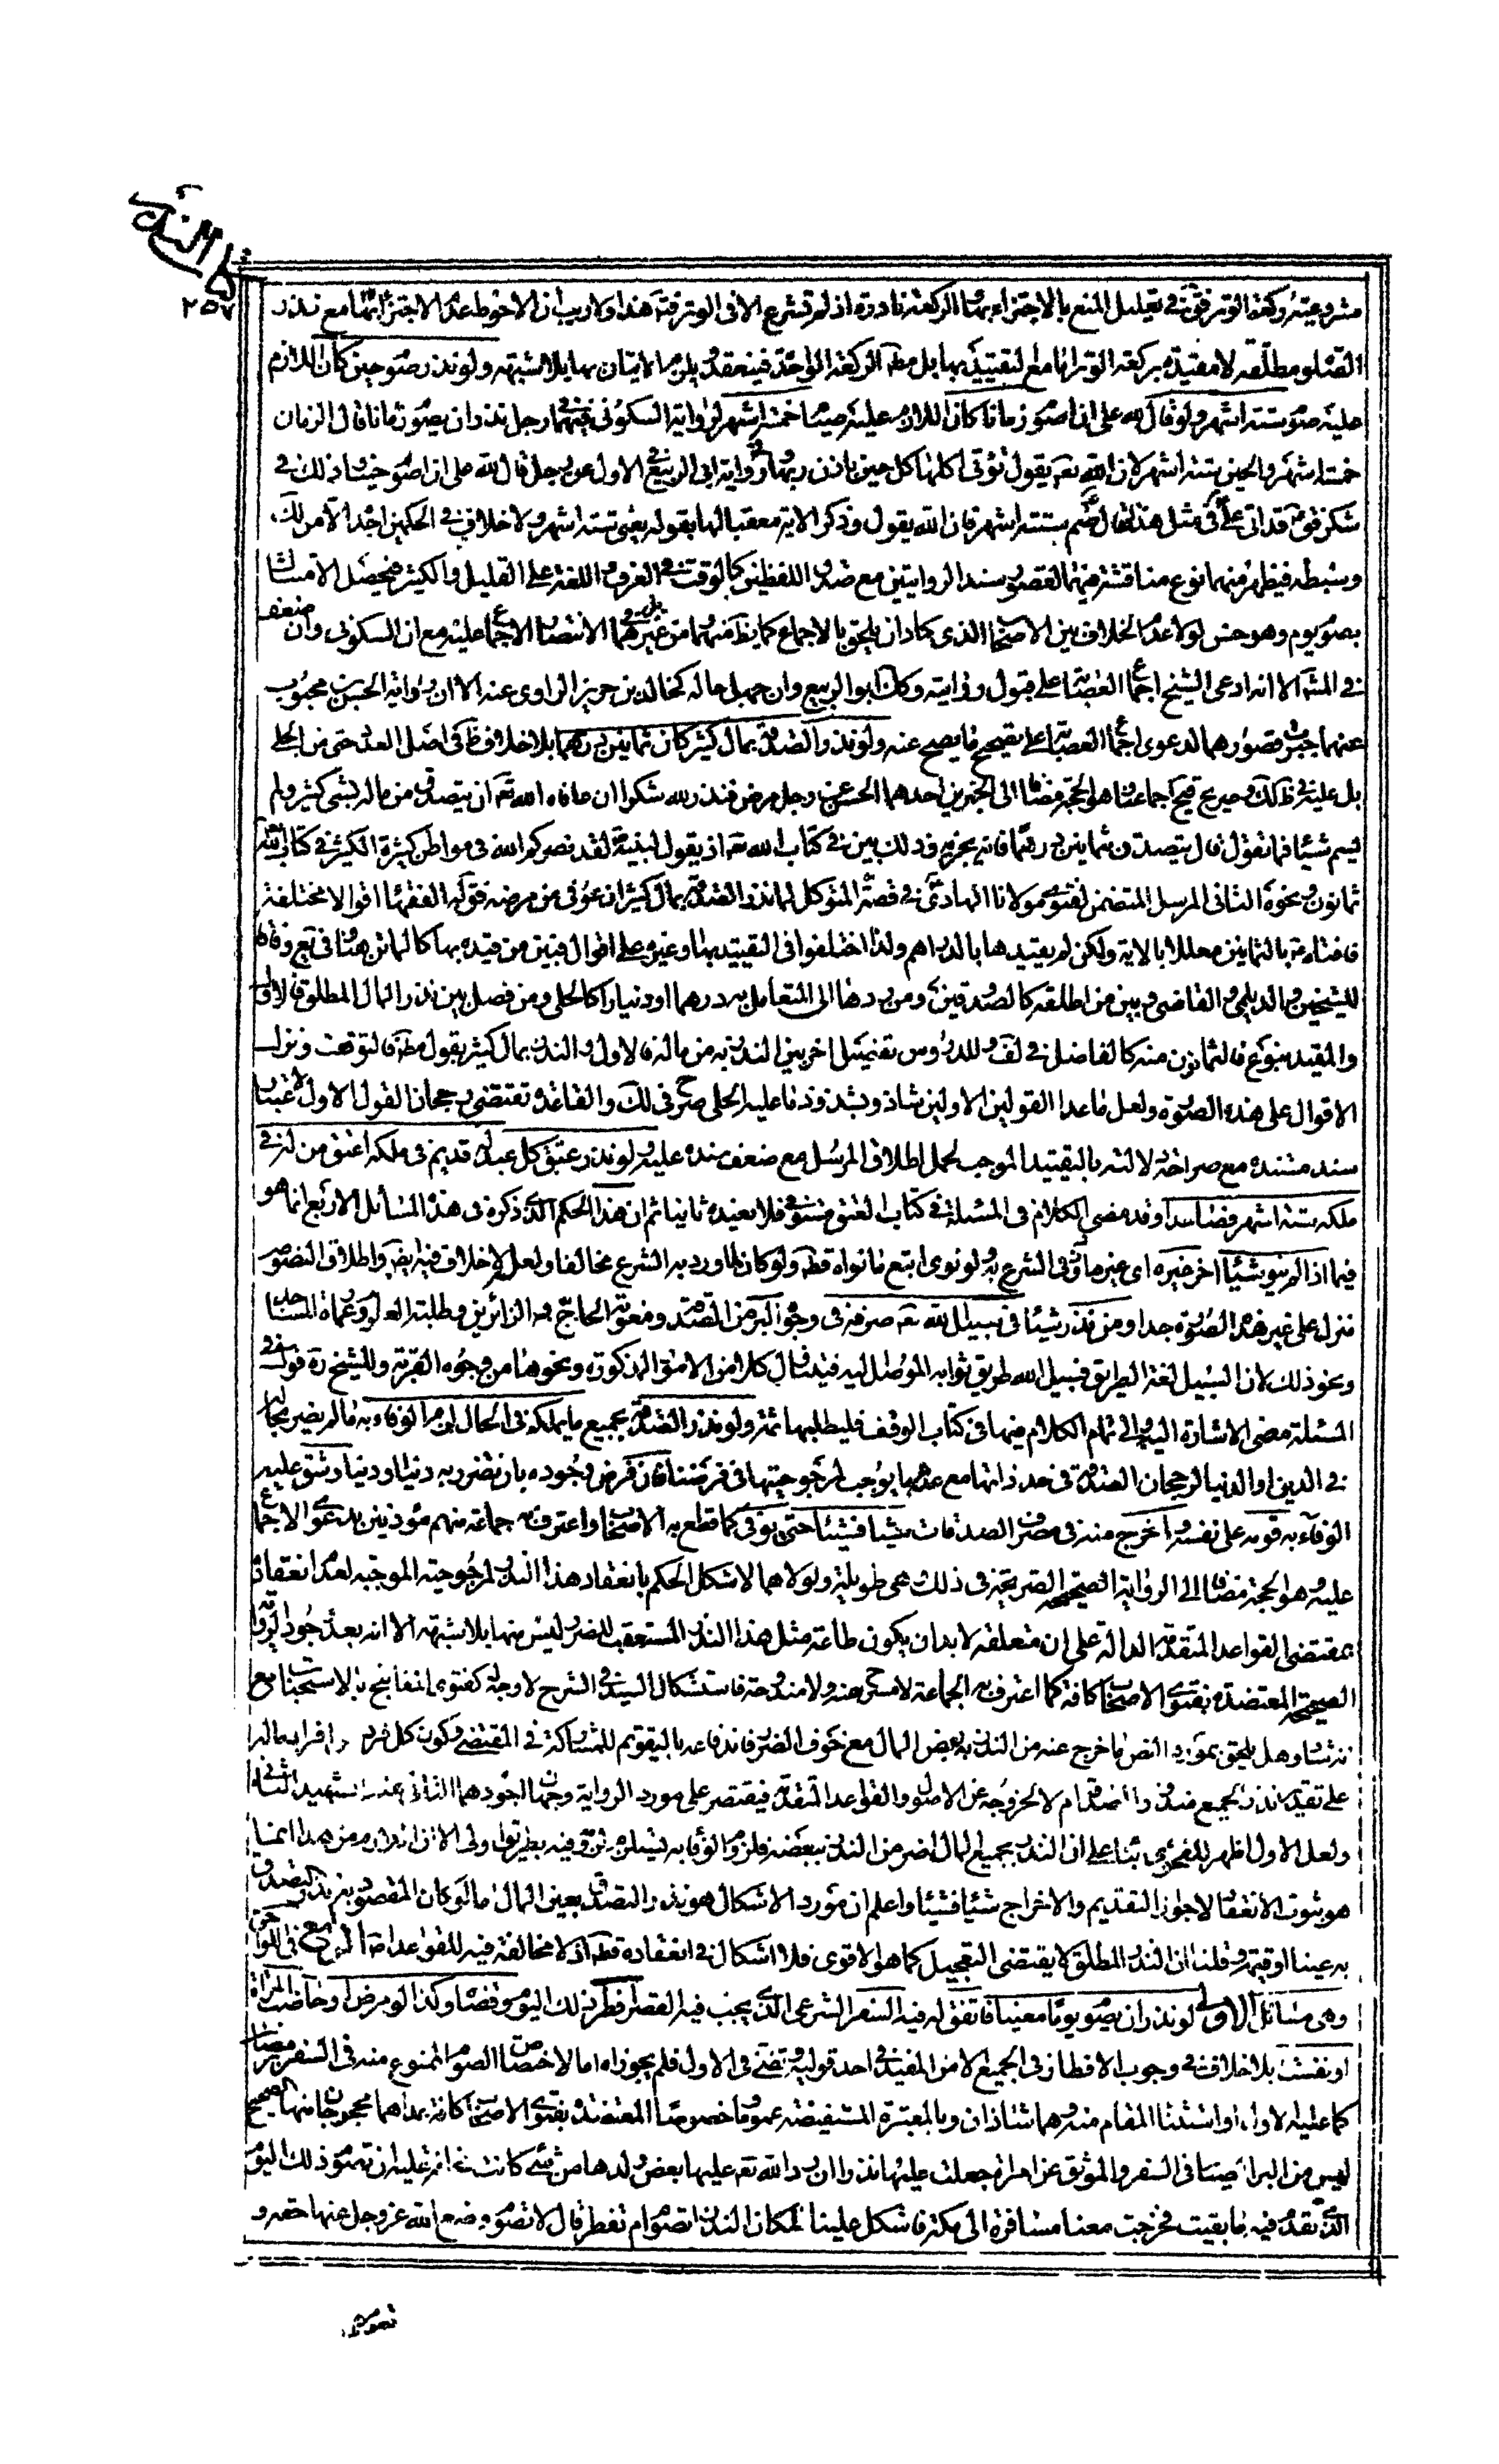 النذر
٢٥٧
مشروعية ركعة الوتر فقوله في تعليل المنع بالاجتزاء بها الركعة نادرة اذ لم تشرع الا في الوتر فيه هذا ولا ريب ان الاحوط عدم الاجتزاء بها مع نذر
الصلوة مطلقة لا مقيدة بركعة الوتر اما مع التقييد بها بل مط الركعة الواحدة فينعقد ويلزم الاتيان بها بلا شبهة ولو نذر صوم حين كان اللازم
عليه صوم ستة اشهر ولو قال لله علي ان اصوم زمانا كان اللازم عليه صيام خمسة اشهر لرواية السكوني ففيهما رجل نذر ان يصوم زمانا قال الزمان
خمسة اشهر والحين ستة اشهر لان الله تعم يقول تؤتي اكلها كل حين باذن ربها ورواية ابي الربيع في الاول عن رجل قال لله علي ان اصوم حينا وذلك في
شكر فق قد اتى علي ع في مثل هذا فقال صم ستة اشهر فان الله يقول وذكر الاية معقبا لها بقوله يعني ستة اشهر ولا خلاف في الحكمين اجده الا من لك
وسبطه فيظهر منهما نوع مناقشة فيهما لقصور سند الروايتين مع صدق اللفظين كالوقت في العرف واللغة على القليل والكثير فيحصل الامتثال
بصوم يوم وهو حسن لولا عدم الخلاف بين الاصحاب الذي كاد ان يلحق بالاجماع كما يظ منهما بل ومن غيرهما الانتصار الاجماع عليه مع ان السكوني وان ضعف
في المش الا انه ادعى الشيخ اجماع العصابة على قبول روايته وكذا ابو الربيع وان جهل حاله كخالد بن جرير الراوي عنه الا ان رواية الحسن بن محبوب
عنهما جبر قصورهما لدعوى اجماع العصابة على تصحيح ما يصح عنه ولو نذر الصدقة بمال كثير كان ثمانين درهما بلا خلاف ظ في اصل العدد حتى من الحلي
بل عليه في ظ لك وصريح قيح اجماعنا وهو الحجة مضافا الى الخبرين احدهما الحسن عن رجل مرض فنذر لله شكرا ان عافاه الله تعم ان يتصدق من ماله بشيء كثير ولم
يسم شيئا فما تقول قال يتصدق بثمانين درهما فانه يجزيه وذلك بين في كتاب الله تعم اذ يقول لنبيه ص لقد نصركم الله في مواطن كثيرة الكثيرة في كتاب الله
ثمانون ونحوه الثاني المرسل المتضمن لفتوى مولانا الهادي ع في قصة المتوكل لما نذر الصدقة بمال كثير ان عوفي من مرضه فق له الفقهاء اقوالا مختلفة
فافتاه ع بالثمانين معللا بالاية ولكن لم يقيدها بالدراهم ولذا اختلفوا في التقييد بها وغيره على اقوال فبين من قيده بها كالماتن هنا وفي يع وفاقا
للشيخين والديلمي والقاضي وبين من اطلقه كالصدوقين ومن ردها الى المتعامل به درهما او دينارا كالحلي ومن فصل بين نذر المال المطلق فالاول
والمقيد بنوع فالثمانون منه كالفاضل في لف وللدروس تفصيل اخر بين النذر به من ماله فالاول والنذر بمال كثير بقول مطلق فالتوقف ونزل
الاقوال على هذه الصورة ولعل ما عدا القولين الاولين شاذ وبشذوذ ما عليه الحلي صرح في لك والقاعدة تقتضي رجحان القول الاول لاعتبار
سند مستنده مع صراحة دلالته بالتقييد الموجب لحمل اطلاق المرسل مع ضعف سنده عليه ولو نذر عتق كل عبد له قديم في ملكه اعتق من له في
ملكه ستة اشهر فصاعدا وقد مضى الكلام في المسئلة في كتاب العتق مستوفى فلا نعيده ثانيا ثم ان هذا الحكم الذي ذكره في هذه المسائل الاربع انما هو
فيما اذا لم ينو شيئا اخر غيره اي غير ما ورد في الشرع به ولو نوى اتبع ما نواه قطعا ولو كان لما ورد به الشرع مخالفا ولعله لا خلاف فيه ايضا واطلاق النصوص
منزل على غير هذه الصورة جدا ومن نذر شيئا في سبيل الله تعم صرفه في وجوه البر من الصدقة ومعونة الحاج والزائرين وطلبة العلم وعمارة المساجد
ونحو ذلك لان السبيل لغة الطريق فسبيل الله طريق ثوابه الموصل اليه فيتناول كلا من الامور المذكورة ونحوها من وجوه القربة وللشيخ ره قول في
المسئلة مضى الاشارة اليه والى تمام الكلام فيها في كتاب الوقف فليطلبها ثمة ولو نذر الصدقة بجميع ما يملكه في الحال لزم الوفاء به ما لم يضر بحاله
في الدين او الدنيا لرجحان الصدقة في حد ذاتها مع عدم ما يوجب مرجوحيتها في فرضنا فان فرض وجوده بان تضرر به دنيا او دينا وشق عليه
الوفاء به قومه على نفسه واخرج منه في مصرف الصدقات شيئا فشيئا حتى يوفى كما قطع به الاصحاب واعترف به جماعة منهم مؤذنين بدعوى الاجماع
عليه وهو الحجة مضافا الى الرواية الصحيحة الصريحة في ذلك وهي طويلة ولولاهما لاشكل الحكم بانعقاد هذا النذر لمرجوحيته الموجبة لعدم انعقاده
بمقتضى القواعد المتقدمة الدالة على ان متعلقه لا بد ان يكون طاعة ومثل هذا النذر المستعقب للضرر ليس منها بلا شبهة الا انه بعد وجود الرواية
الصحيحة المعتضدة بفتوى الاصحاب كافة كما اعترف به الجماعة لا مسرح عنه ولا مندوحة فاستشكال السيد في الشرح لا وجه له كفتوى المفاتيح بالاستحباب مع
وهل يلحق بمورد النص ما خرج عنه من النذر ببعض المال مع خوف الضرر فاندفاعه بالتقويم للمشاركة في المقتضى وكون كل فرد
على تقدير نذر الجميع منذورا ام لا لخروجه عن الاصول والقواعد المتقدمة فيقتصر على مورد الرواية وجهان اجودهما الثاني عند الشهيد الثاني
ولعل الاول اظهر للفحوى بناء على ان النذر بجميع المال اضر من النذر ببعضه فلزوم الوفاء به يستلزم لزومه فيه بطريق اولى
هو ثبوت الانعقاد لا جواز التقديم والاخراج شيئا فشيئا واعلم ان مورد الاشكال هو نذر التصدق بعين المال اما لو كان المقصود بنذره التصدق
به عينا او قيمة وقلنا ان النذر المطلق لا يقتضي التعجيل كما هو الاقوى فلا اشكال في انعقاده قطعا اذ لا مخالفة فيه للقواعد الرابع في اللواحق
وهي مسائل الاولى لو نذر ان يصوم يوما معينا فاتفق له فيه السفر الشرعي الذي يجب فيه القصر افطر ذلك اليوم وقضاه وكذا لو مرض او حاضت المراة
او نفست بلا خلاف في وجوب الافطار في الجميع الا من المفيد في احد قوليه والمرتضى في الاول فلم يجوزاه اما لاختصاص الصوم الممنوع منه في السفر برمضان
كما عليه الاول او استثناء المقام منه وهما شاذان وبالمعتبرة المستفيضة عموما وخصوصا المعتضدة بفتوى الاصحاب كافة بعداهما محجوجان منها الصحيح
ليس من البر الصيام في السفر والموثق عن امراة جعلت عليها نذرا ان رد الله تعم عليها بعض ولدها من شيء كانت تخافه عليه ان تصوم ذلك اليوم
الذي تقدم فيه ما بقيت فخرجت معنا مسافرة الى مكة فاشكل علينا لمكان النذر اتصوم ام تفطر قال لا تصوم وضع الله عز وجل عنها حقه و
تصوم